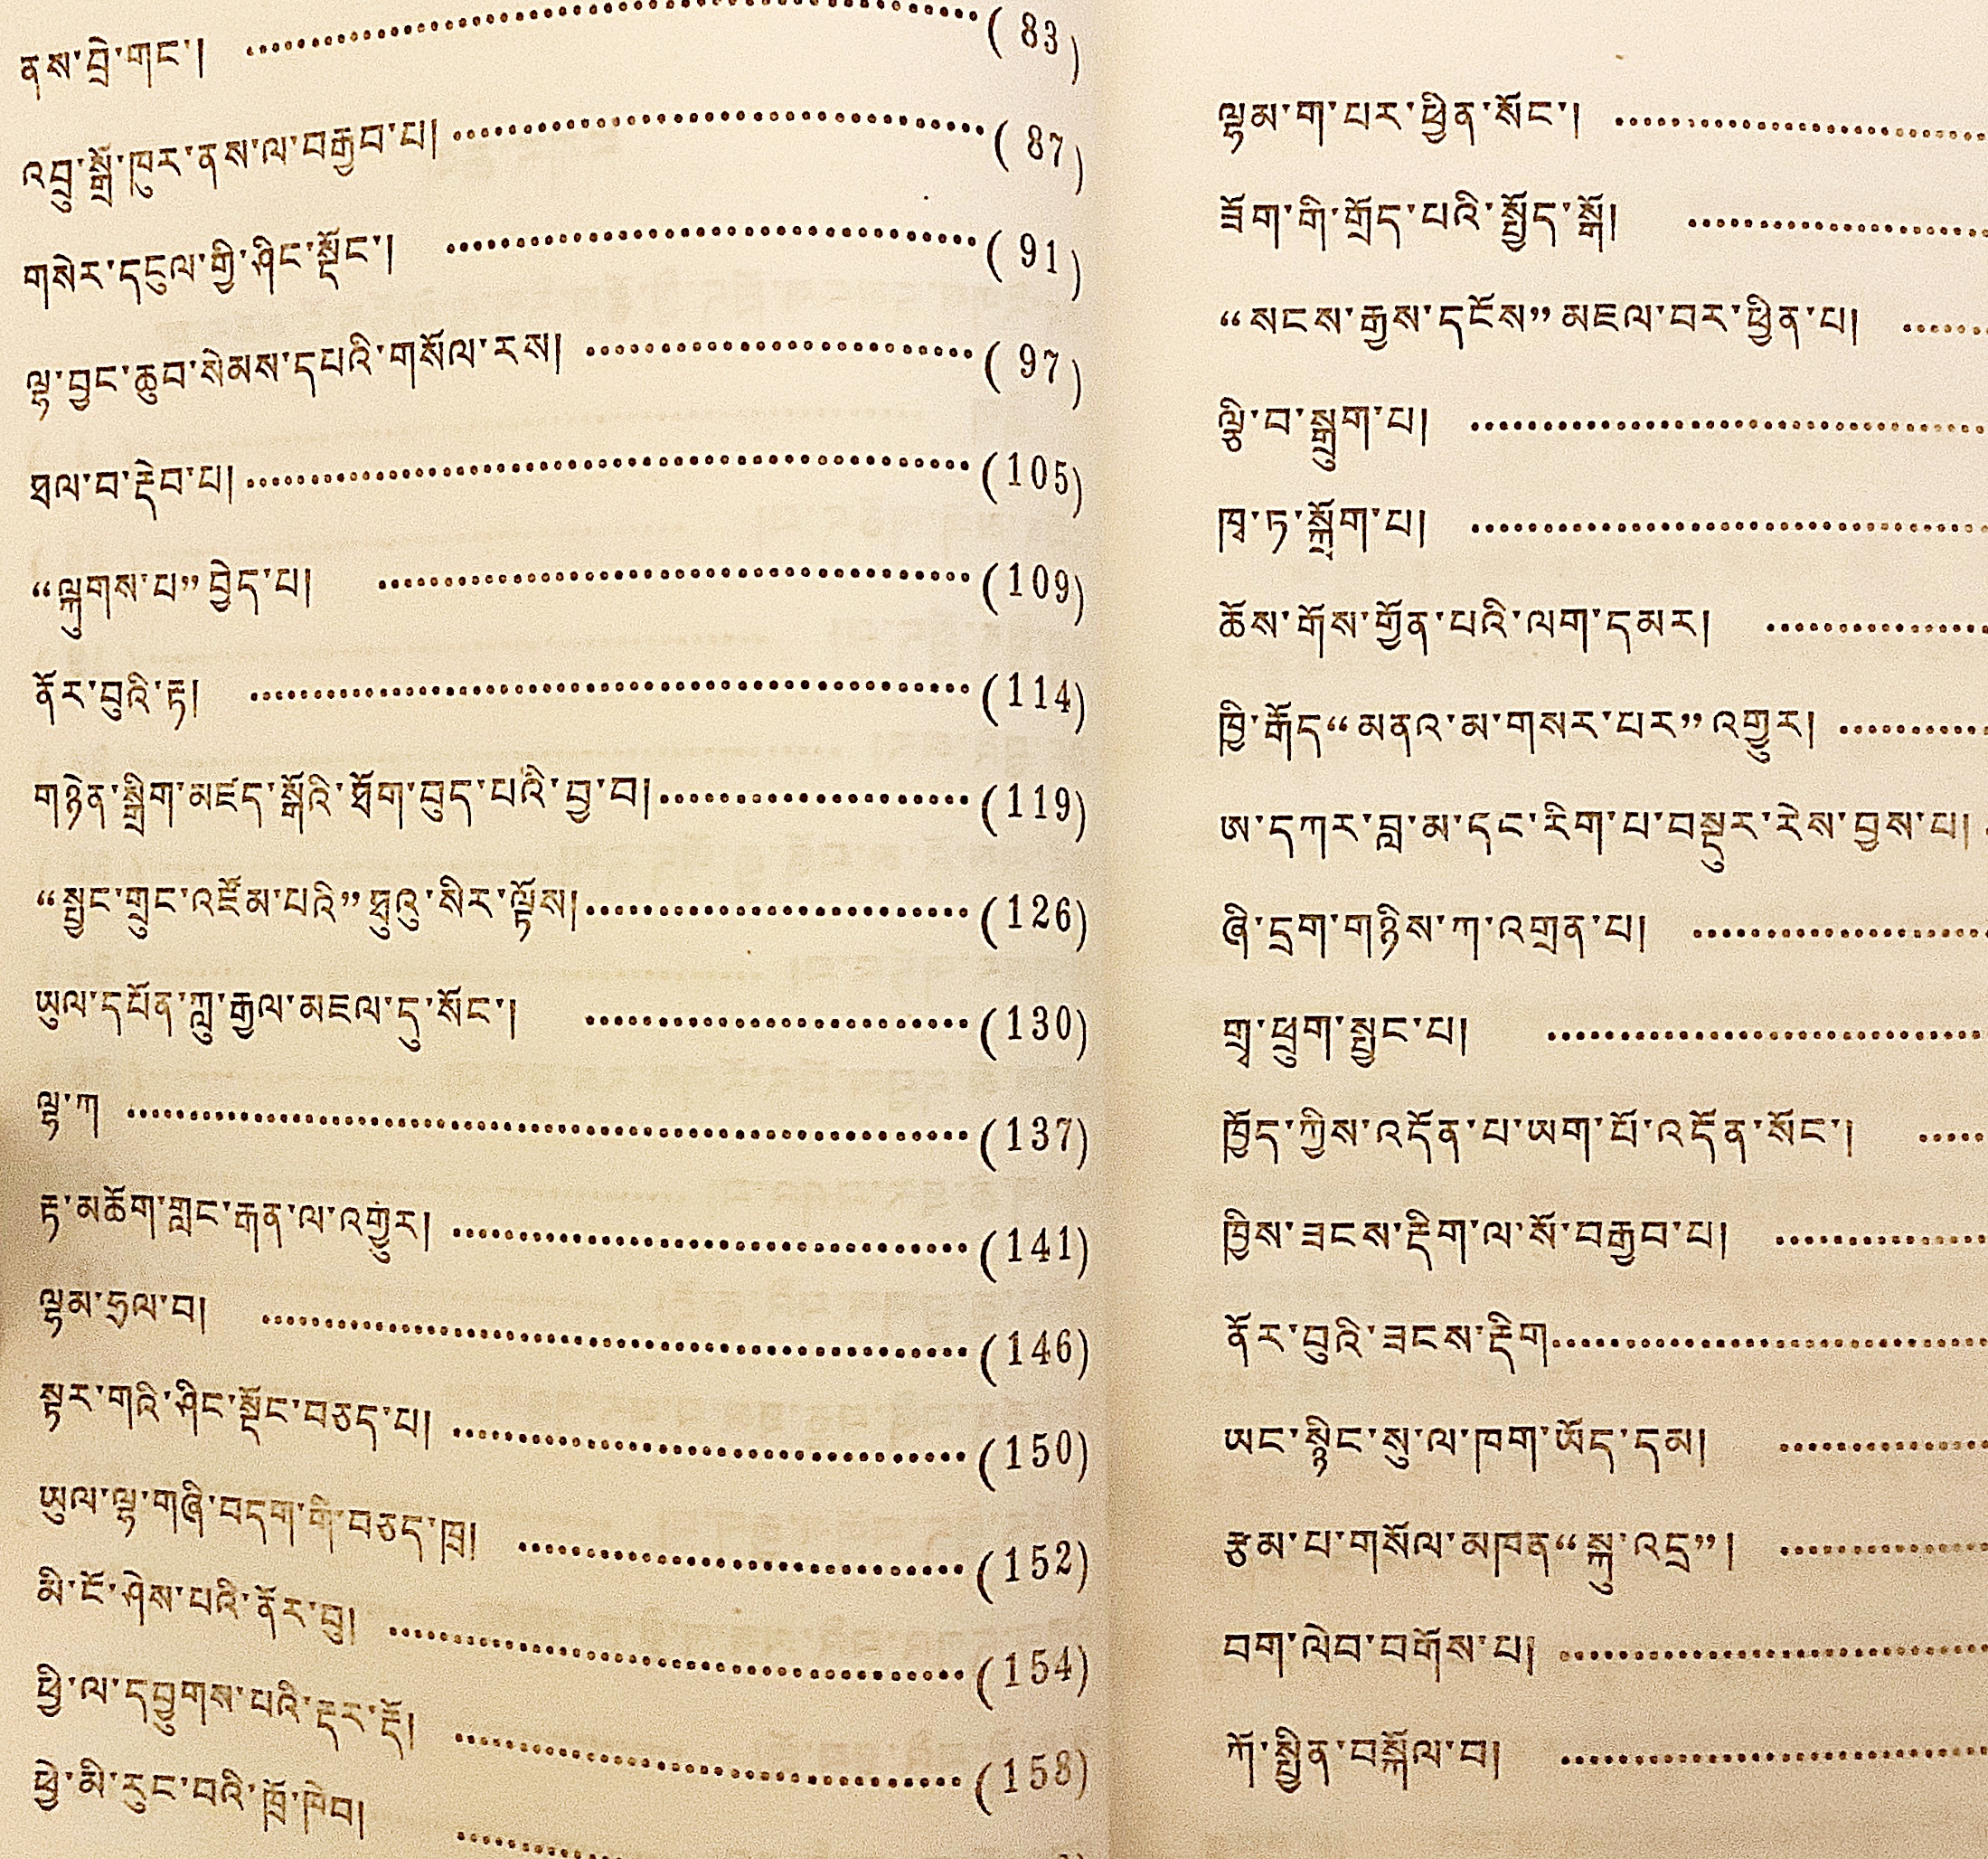 ནས་བྲེ་གང་། ……(83)
འབྲུ་སྒྲོ་ཁུར་ནས་ལ་བརྒྱབ་པ། ……(87)
གསེར་དངུལ་གྱི་ཤིང་སྡོང་། ……(91)
ལྷ་བྱང་ཆུབ་སེམས་དཔའི་གསོལ་རས། ……(97)
ཐལ་བ་རྡེབ་པ། ……(105)
“ལྐུགས་པ”བྱེད་པ། ……(109)
ནོར་བུའི་རྟ། ……(114)
གཉེན་སྒྲིག་མཛད་སྒོའི་ཐོག་བུད་པའི་བྱ་བ། ……(119)
“སྤྱང་གྲུང་འཛོམ་པའི”ཧྥུའུ་སིར་ལྟོས། ……(126)
ཡུལ་དཔོན་ཀླུ་རྒྱལ་མཇལ་དུ་སོང་། ……(130)
ལྷ་ཀ ……(137)
རྟ་མཆོག་གླང་རྒན་ལ་འགྱུར། ……(141)
ལྷམ་ཧྲལ་བ། ……(146)
སྟར་གའི་ཤིང་སྡོང་བཅད་པ། ……(150)
ཡུལ་ལྷ་གཞི་བདག་གི་བཅད་ཁྲ། ……(152)
མི་ངོ་ཤེས་པའི་ནོར་བུ། ……(154)
ཕྱི་ལ་དབྱུགས་པའི་རྡར་རྡོ། ……(158)
ཕྱེ་མི་རུང་བའི་ཁྲོ་ཁེབ། ……
ལྷམ་ག་པར་ཕྱིན་སོང་། ……
ཟོག་གི་གྲོད་པའི་སྤྱོད་སྒོ། ……
“སངས་རྒྱས་དངོས”མཇལ་བར་ཕྱིན་པ། ……
ལྕི་བ་སྒྲུག་པ། ……
ཁྭ་ཏ་སྐློག་པ། ……
ཆོས་གོས་གྱོན་པའི་ལག་དམར། ……
ཁྱི་རྒོད“མནའ་མ་གསར་པར”འགྱུར། ……
ཨ་དཀར་བླ་མ་དང་རིག་པ་བསྡུར་རེས་བྱས་པ།
ཞི་དྲག་གཉིས་ཀ་འགྲན་པ། ……
གྲྭ་ཕྲུག་སྤྱང་པ། ……
ཁྱོད་ཀྱིས་འདོན་པ་ཡག་པོ་འདོན་སོང་། ……
ཁྱིས་ཟངས་རྡིག་ལ་སོ་བརྒྱབ་པ། ……
ནོར་བུའི་ཟངས་རྡིག ……
ཡང་སྙིང་སུ་ལ་ཁག་ཡོད་དམ། ……
རྩམ་པ་གསོལ་མཁན“སྐུ་འདྲ”། ……
བག་ལེབ་བགོས་པ། ……
ཀོ་སྤྱིན་བསྐོལ་བ། ……